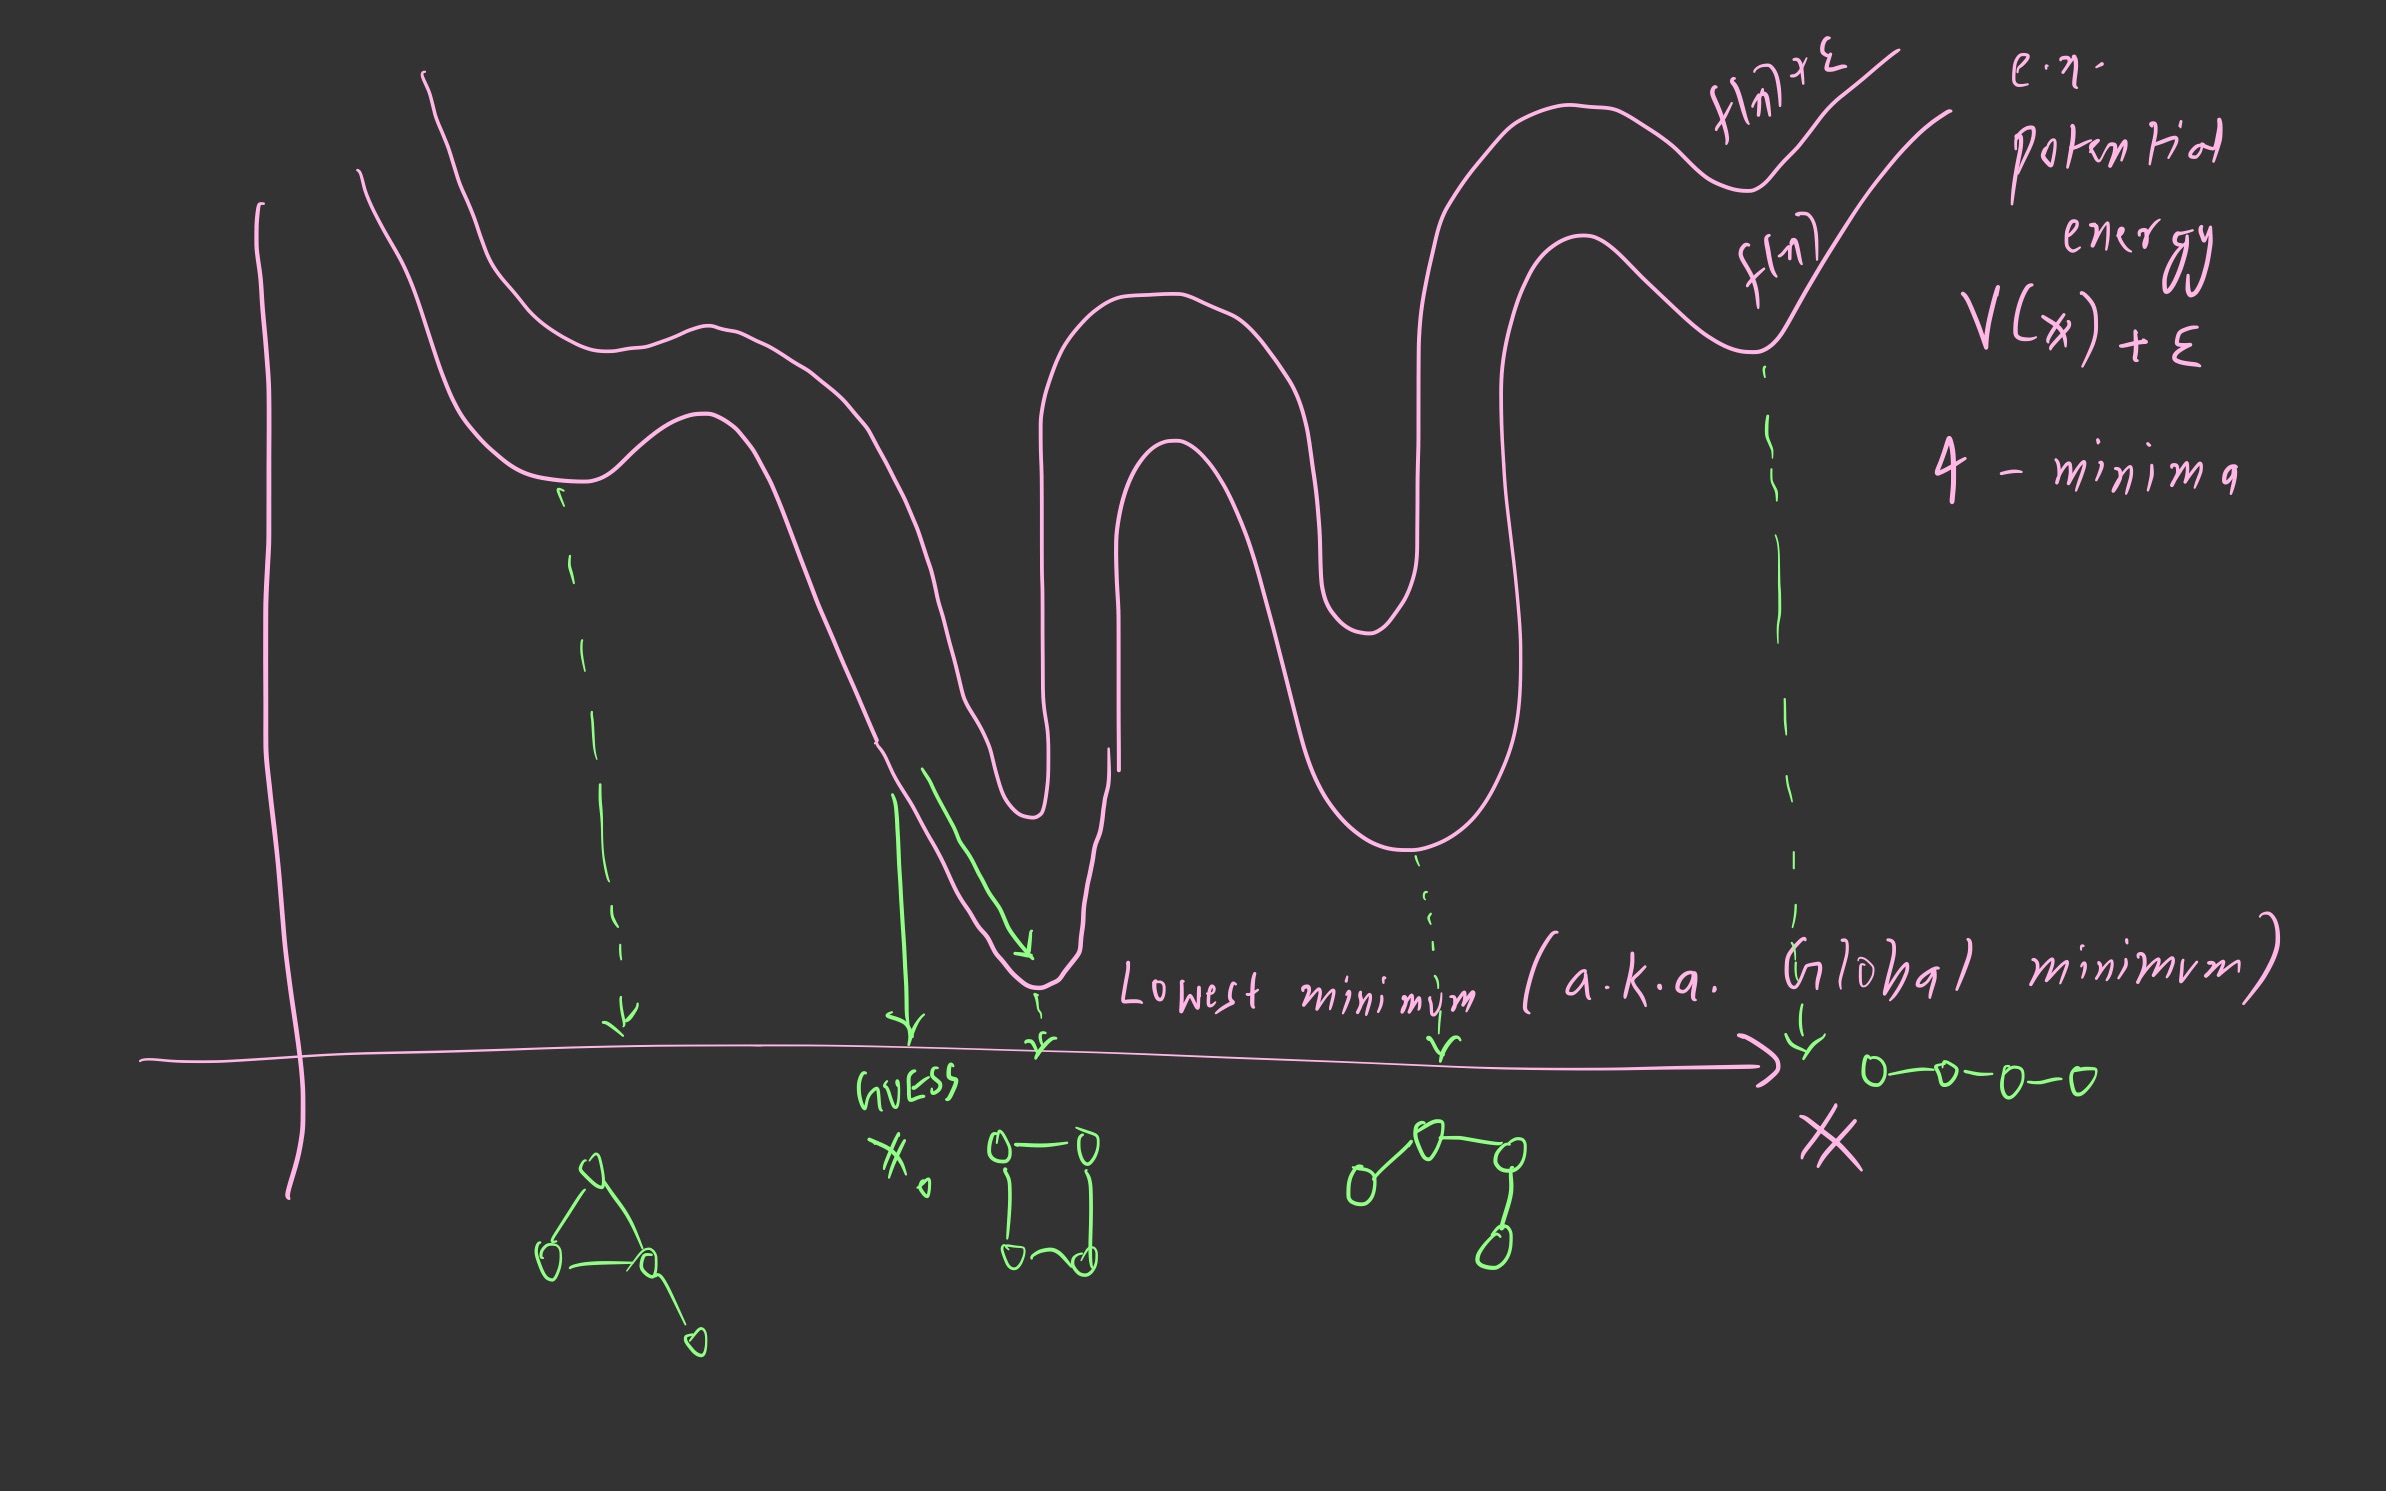 e.x.
potential
energy
V(x) + ε
4 - minima
Lowest minimum (a.k.a. Global minimum)
GUESS
X₀
X